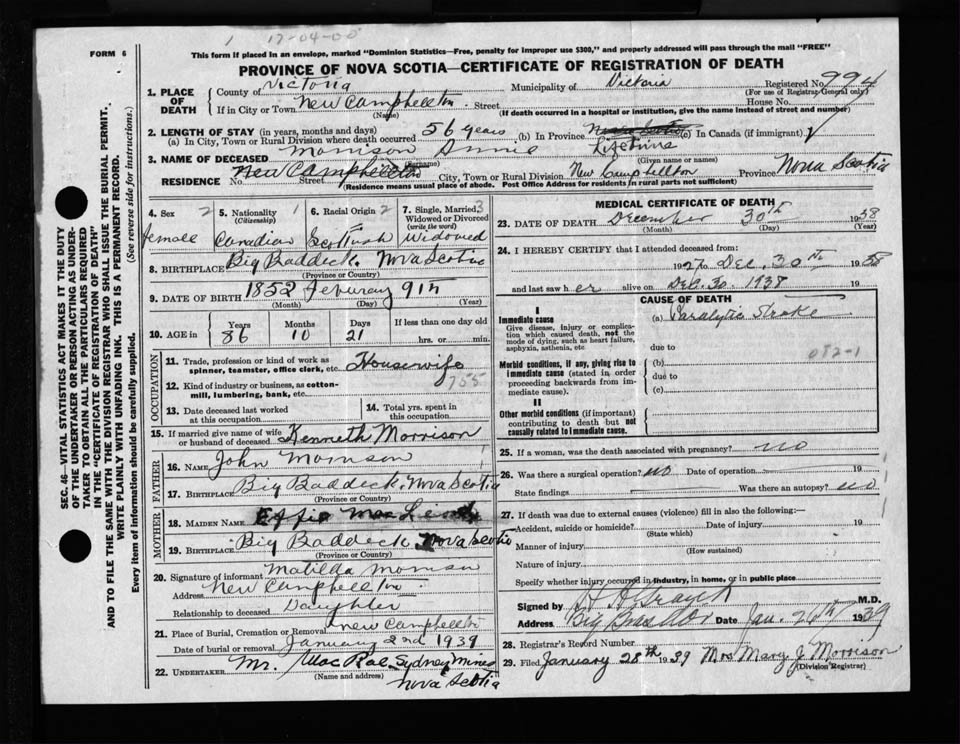 1 17-04-00
FORM 6
This form if placed in an envelope, marked "Dominion Statistics—Free, penalty for improper use $300," and properly addressed will pass through the mail "FREE"
PROVINCE OF NOVA SCOTIA—CERTIFICATE OF REGISTRATION OF DEATH
1. PLACE OF DEATH County of Victoria Municipality of Victoria Registered No. 994
(For use of Registrar-General only)
If in City or Town New Campbellton Street House No.
(Name) (If death occurred in a hospital or institution, give the name instead of street and number)
2. LENGTH OF STAY (in years, months and days)
(a) In City, Town or Rural Division where death occurred 56 years (b) In Province Lifetime (c) In Canada (if immigrant)
3. NAME OF DECEASED Morrison Annie
(Surname) (Given name or names)
RESIDENCE No. New Campbellton Street City, Town or Rural Division New Campbellton Province Nova Scotia
(Residence means usual place of abode. Post Office Address for residents in rural parts not sufficient)
4. Sex 2 female
5. Nationality (Citizenship) 1 Canadian
6. Racial Origin 2 Scottish
7. Single, Married, Widowed or Divorced (write the word) 3 Widowed
8. BIRTHPLACE Big Baddeck, Nova Scotia
(Province or Country)
9. DATE OF BIRTH 1852 Feburary 9th
(Month) (Day) (Year)
10. AGE in Years 86 Months 10 Days 21 If less than one day old hrs. or min.
OCCUPATION
11. Trade, profession or kind of work as spinner, teamster, office clerk, etc. Housewife
12. Kind of industry or business, as cotton-mill, lumbering, bank, etc. 755
13. Date deceased last worked at this occupation
14. Total yrs. spent in this occupation
15. If married give name of wife or husband of deceased Kenneth Morrison
FATHER
16. NAME John Morrison
17. BIRTHPLACE Big Baddeck, Nova Scotia
(Province or Country)
MOTHER
18. MAIDEN NAME Effie MacLeod
19. BIRTHPLACE Big Baddeck Nova Scotia
(Province or Country)
20. Signature of informant Matilda Morrison
Address New Campbellton
Relationship to deceased Daughter
21. Place of Burial, Cremation or Removal New Campbellton
Date of burial or removal January 2nd 1939
22. UNDERTAKER Mr. MacRae, Sydney Mines
(Name and address)
Nova Scotia
MEDICAL CERTIFICATE OF DEATH
23. DATE OF DEATH December 30th 1938
(Month) (Day) (Year)
24. I HEREBY CERTIFY that I attended deceased from:
1927 to Dec. 30th 1938
and last saw her alive on Dec. 30. 1938 19
CAUSE OF DEATH
I
Immediate cause (a) Paralytic Stroke
Give disease, injury or complication which caused death, not the mode of dying, such as heart failure, asphyxia, asthenia, etc
due to
082-1
Morbid conditions, if any, giving rise to immediate cause (stated in order proceeding backwards from immediate cause).
(b)
due to
(c)
II
Other morbid conditions (if important) contributing to death but not causally related to immediate cause.
25. If a woman, was the death associated with pregnancy? no
26. Was there a surgical operation? no Date of operation 19
State findings Was there an autopsy? no
27. If death was due to external causes (violence) fill in also the following:—
Accident, suicide or homicide? Date of injury 19
(State which)
Manner of injury
(How sustained)
Nature of injury
Specify whether injury occurred in industry, in home, or in public place
Signed by M.D.
Address Date Jan. 1939
28. Registrar's Record Number
29. Filed January 28th 1939 Mrs Mary J. Morrison
(Division Registrar)
SEC. 46—VITAL STATISTICS ACT MAKES IT THE DUTY
OF THE UNDERTAKER OR PERSON ACTING AS UNDERTAKER TO OBTAIN ALL THE PARTICULARS REQUIRED
IN THE "CERTIFICATE OF REGISTRATION OF DEATH"
AND TO FILE THE SAME WITH THE DIVISION REGISTRAR WHO SHALL ISSUE THE BURIAL PERMIT.
WRITE PLAINLY WITH UNFADING INK. THIS IS A PERMANENT RECORD.
Every item of information should be carefully supplied. (See reverse side for instructions.)